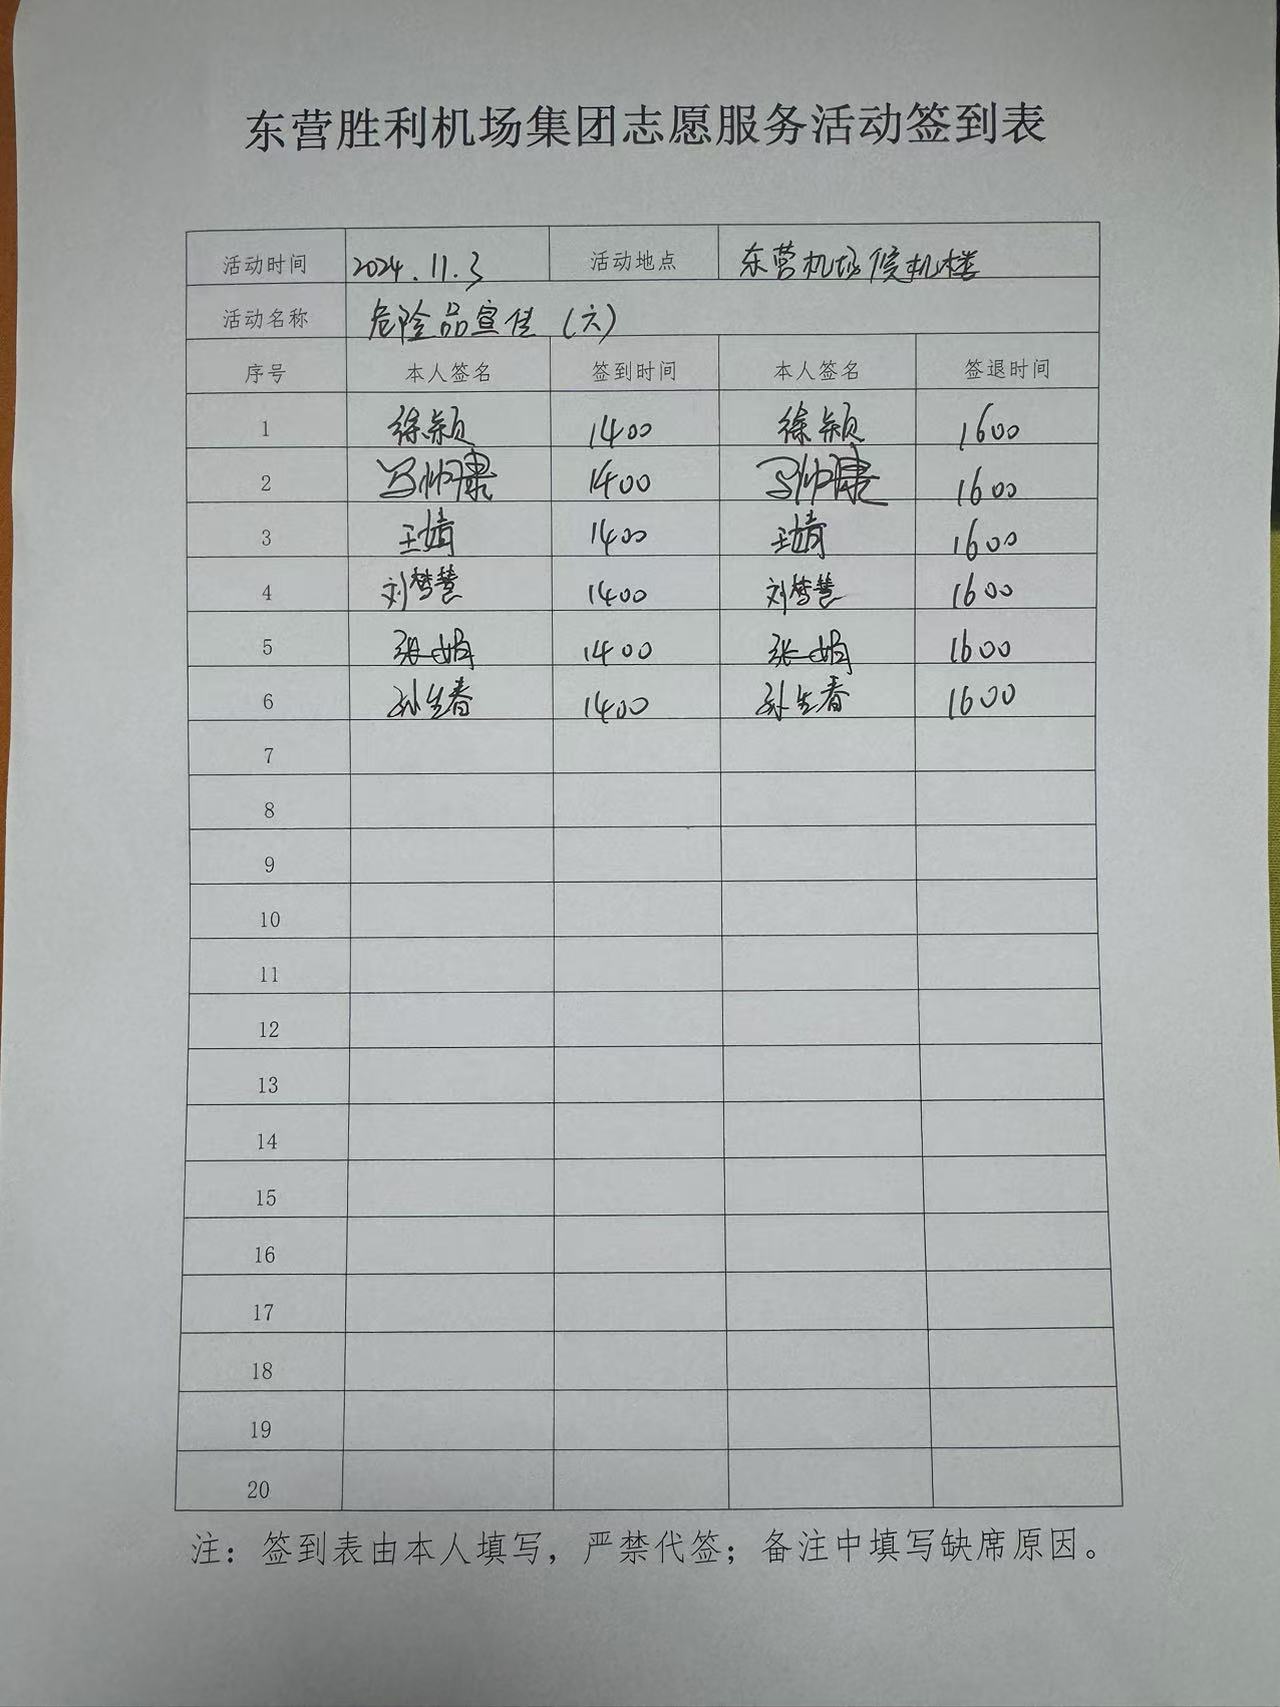 东营胜利机场集团志愿服务活动签到表
活动时间 2024.11.3 活动地点 东营机场候机楼
活动名称 危险品宣传（六）
序号 本人签名 签到时间 本人签名 签退时间
1 徐颖 1400 徐颖 1600
2 马帅康 1400 马帅康 1600
3 王婧 1400 王婧 1600
4 刘梦慧 1400 刘梦慧 1600
5 张娟 1400 张娟 1600
6 孙生春 1400 孙生春 1600
7
8
9
10
11
12
13
14
15
16
17
18
19
20
注：签到表由本人填写，严禁代签；备注中填写缺席原因。